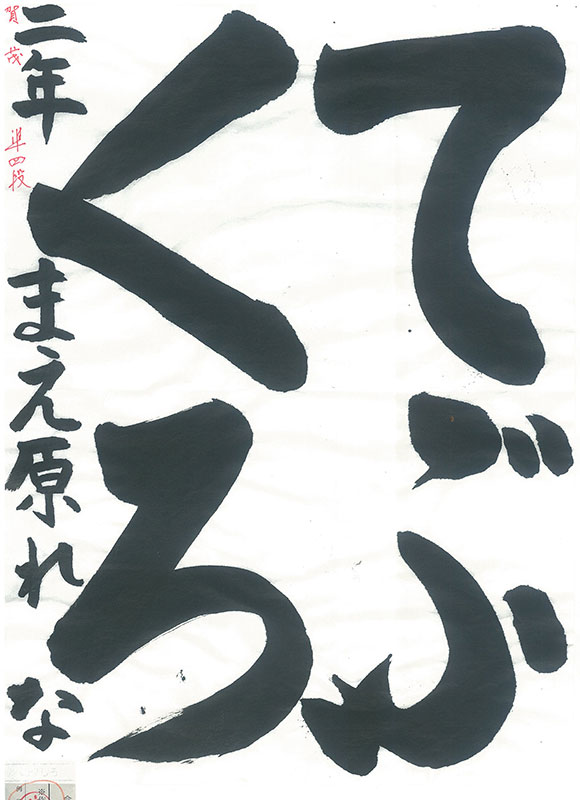 てぶ
くろ
二年 まえ原れな
賀茂 準四段